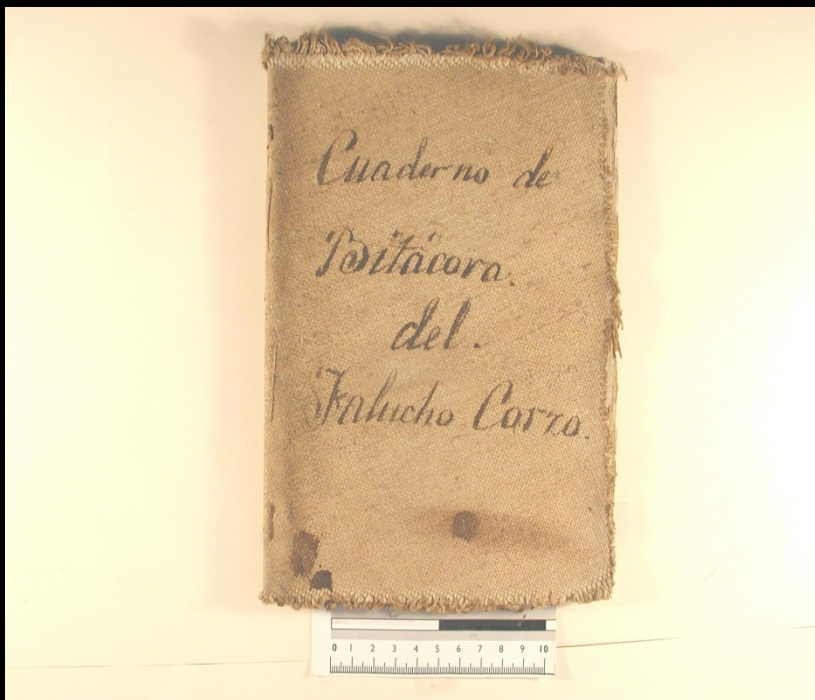 Cuaderno de
Bitácora.
del.
Falucho Corzo.
0 1 2 3 4 5 6 7 8 9 10